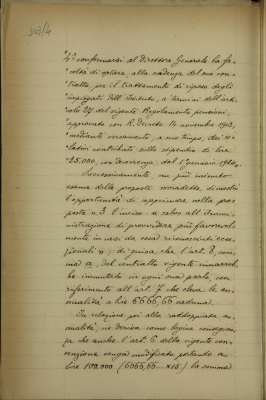 303/4
"4° confermarsi al Direttore Generale la fa-
"coltà di optare, alla scadenza del suo con-
"tratto, pel trattamento di riposo degli
"impiegati dell'Istituto, a termini dell'arti-
"colo 27 del vigente Regolamento pensioni,
"approvato con R. Decreto 14 novembre 1913,
"mediante versamento, a suo tempo, dei re-
"lativi contributi sullo stipendio di lire
"25.000, con decorrenza dal 1° gennaio 1920.
Successivamente, un più minuto
esame delle proposte succitate dimostrò
l'opportunità di sopprimere nella pro-
posta n. 3 l'inciso « salvo all'Ammi-
nistrazione di provvedere più favorevol-
mente in casi da essa riconosciuti ecce-
zionali »; di guisa che l'art. 8, com-
ma a, del contratto vigente rimarreb-
be immutato in ogni sua parte, con
riferimento all'art. 7 che eleva le an-
nualità a lire 6666,66 cadauna.
In relazione poi alla raddoppiata an-
nualità, ne deriva come logica conseguen-
za che anche l'art. 6 della vigente con-
venzione venga modificato portando a
lire 100.000 (6666,66... x 15) la somma